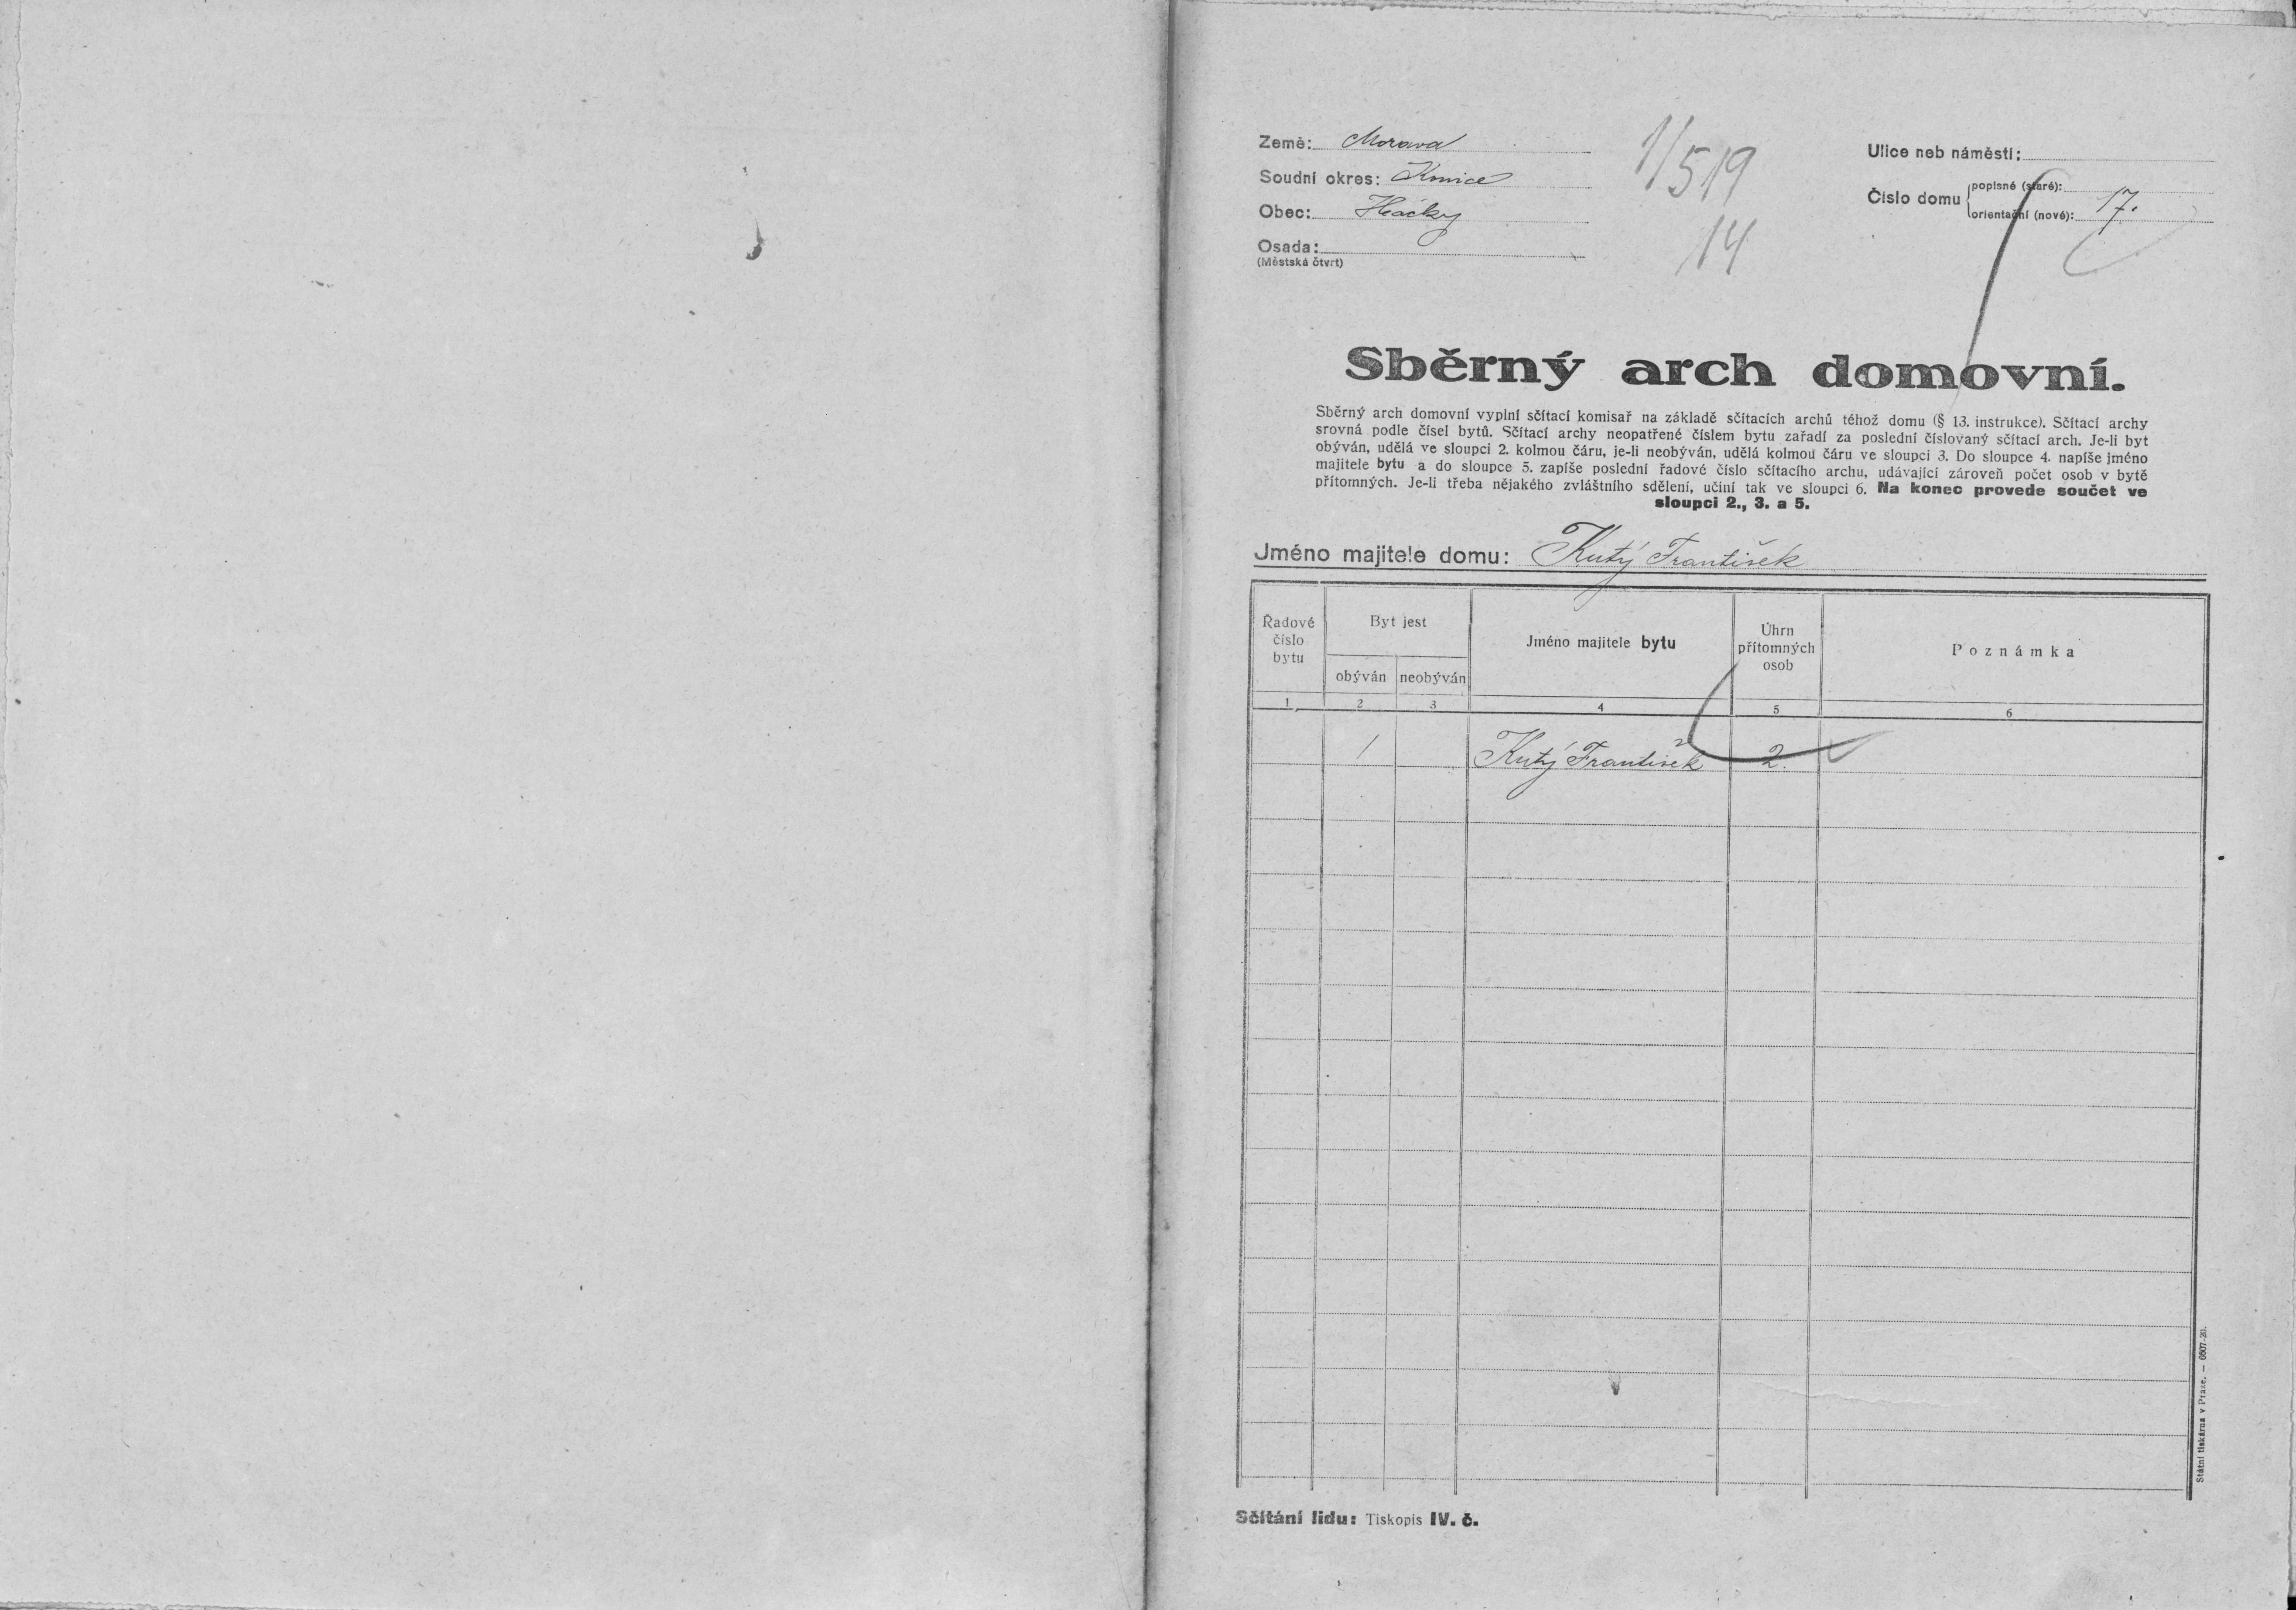 Země: Morava
Soudní okres: Konice
Obec: Hačky
Osada:
(Městská čtvrt)
1/519
14
Ulice neb náměstí:
Číslo domu
popisné (staré):
orientační (nové): 17.
Sběrný arch domovní.
Sběrný arch domovní vyplní sčítací komisař na základě sčítacích archů téhož domu (§ 13. instrukce). Sčítací archy
srovná podle čísel bytů. Sčítací archy neopatřené číslem bytu zařadí za poslední číslovaný sčítací arch. Je-li byt
obýván, udělá ve sloupci 2. kolmou čáru, je-li neobýván, udělá kolmou čáru ve sloupci 3. Do sloupce 4. napíše jméno
majitele bytu a do sloupce 5. zapíše poslední řadové číslo sčítacího archu, udávající zároveň počet osob v bytě
přítomných. Je-li třeba nějakého zvláštního sdělení, učiní tak ve sloupci 6. Na konec provede součet ve
sloupci 2., 3. a 5.
Jméno majitele domu: Kutý František
Řadové
číslo
bytu
Byt jest
obýván
neobýván
Jméno majitele bytu
Úhrn
přítomných
osob
Poznámka
1 2 3 4 5 6
1 Kutý František 2.
Státní tiskárna v Praze. — 6507-20.
Sčítání lidu: Tiskopis IV. č.